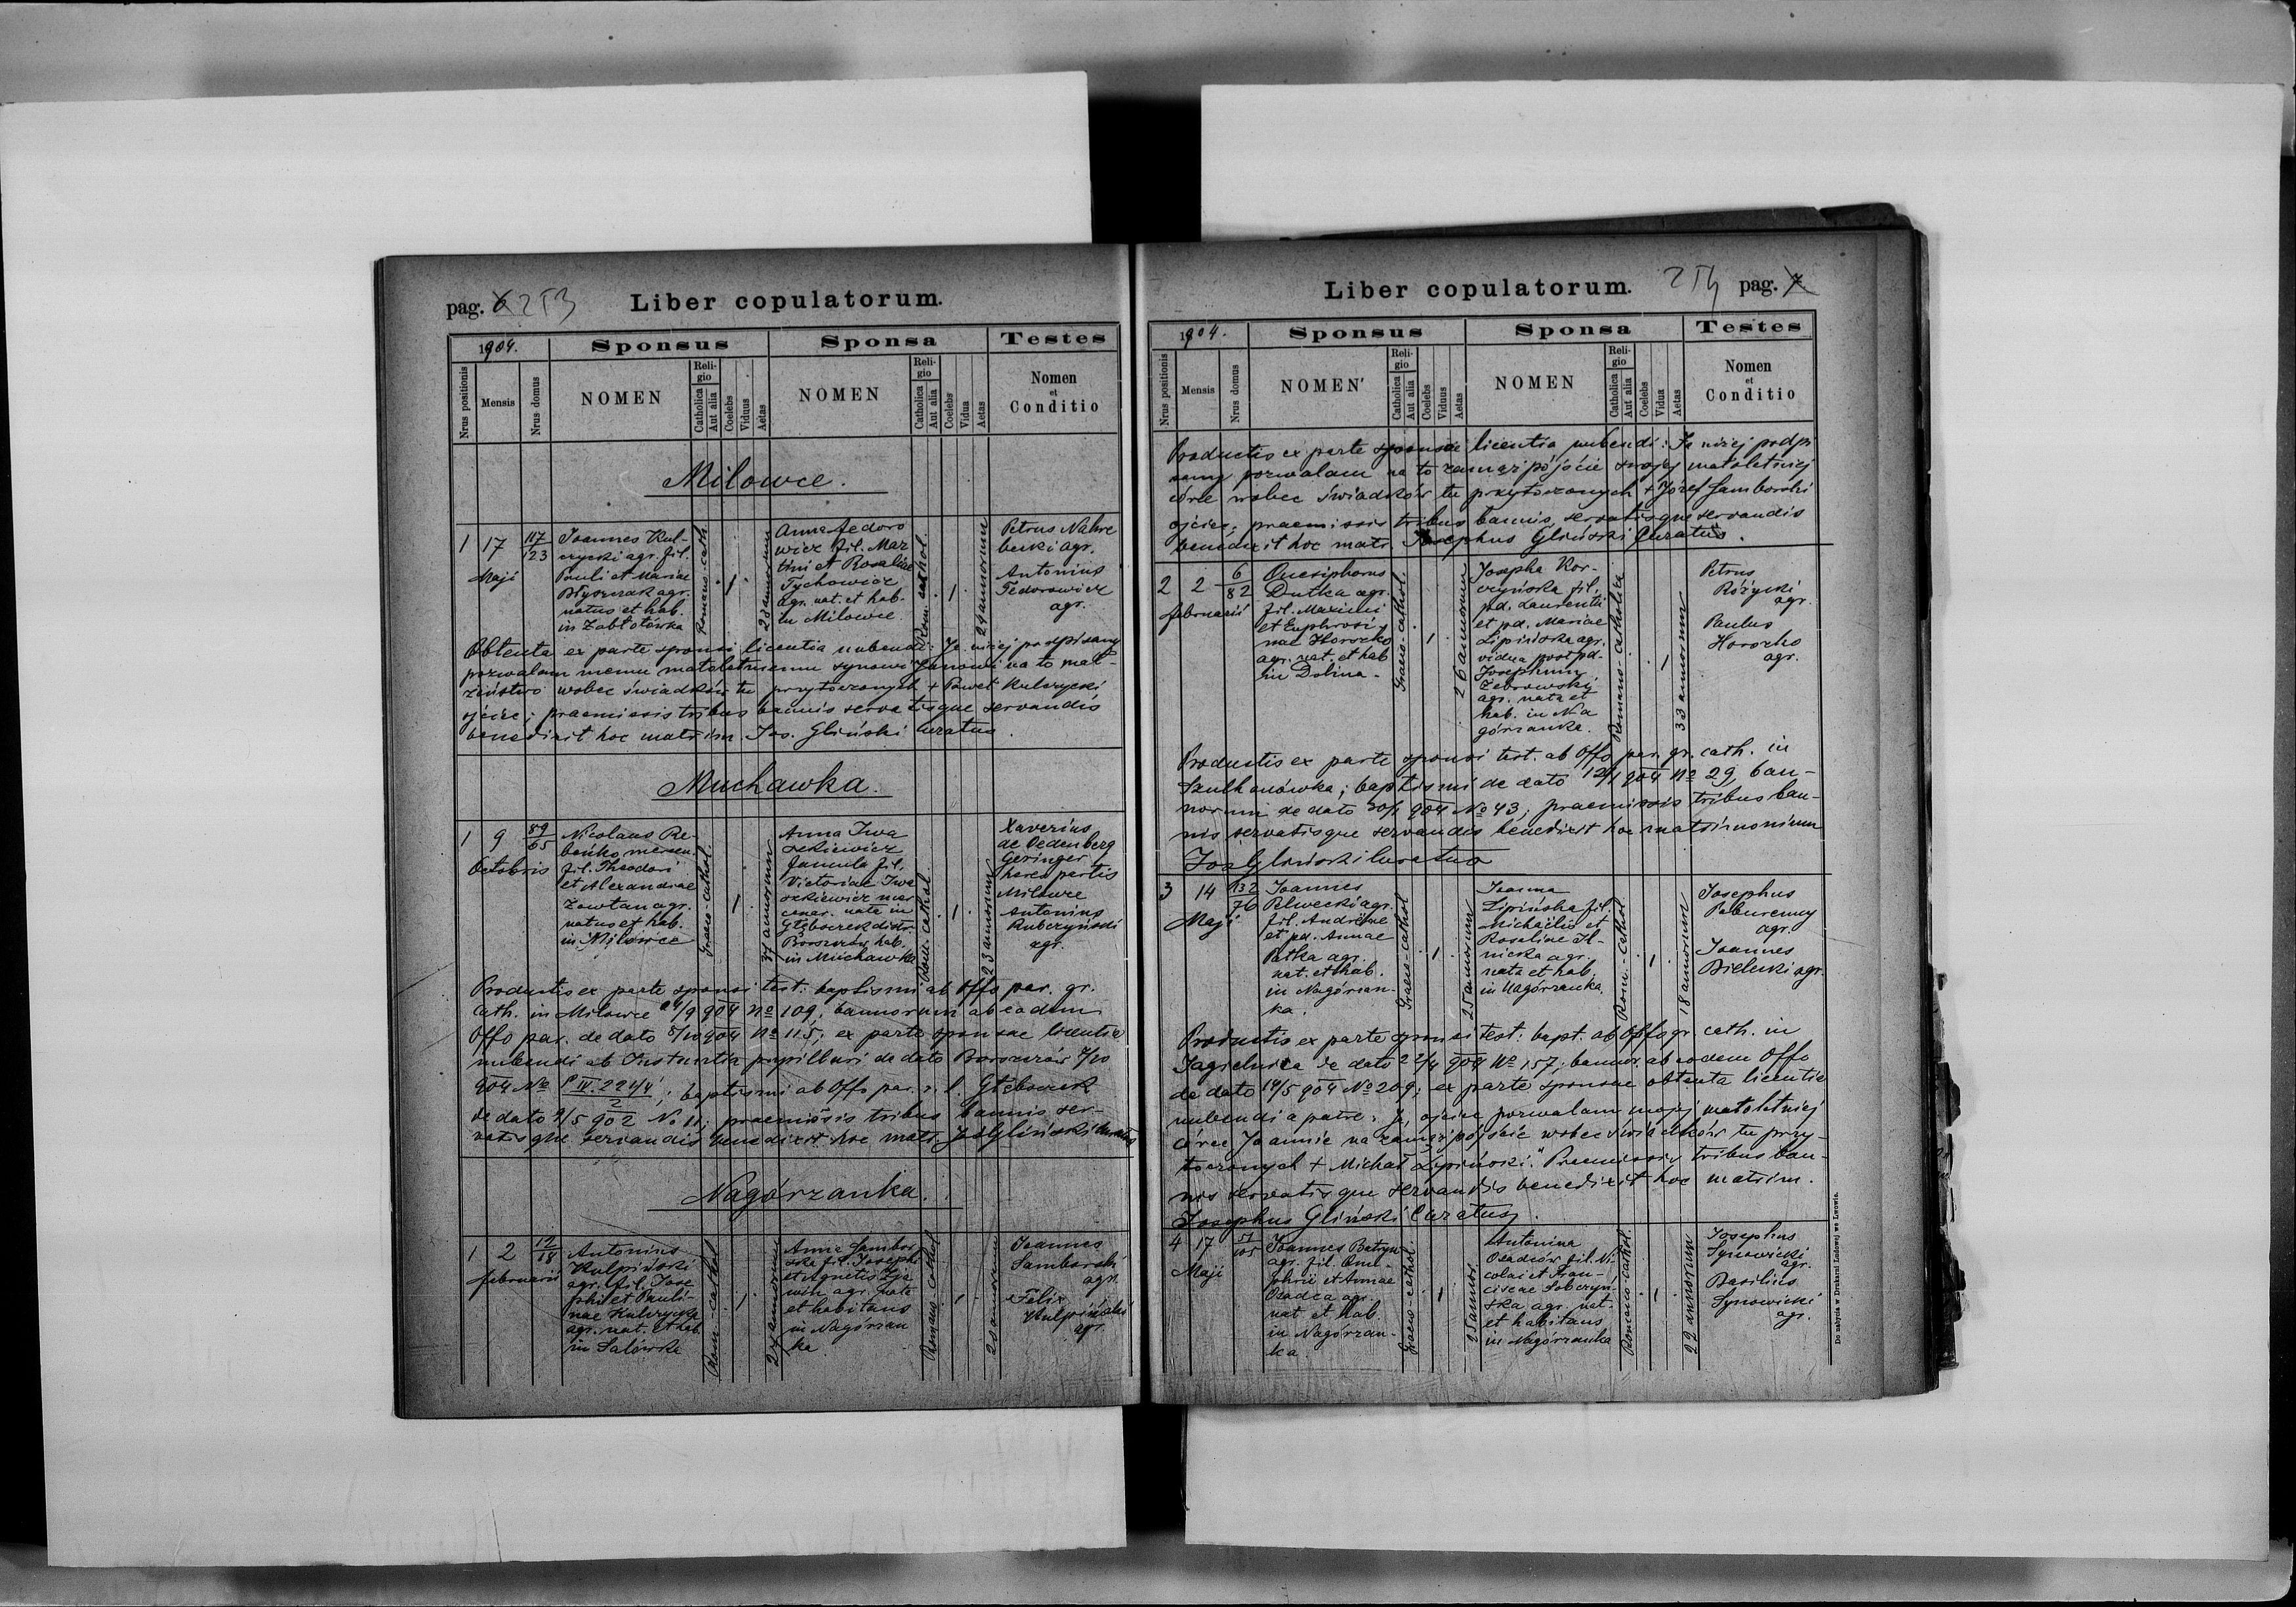 pag. 6 253 Liber copulatorum.
1904. Sponsus Sponsa Testes
Nrus positionis Mensis Nrus domus NOMEN Religio Catholica Aut alia Coelebs Viduus Aetas NOMEN Religio Catholica Aut alia Coelebs Vidua Aetas Nomen et Conditio
Milowce.
1 17 Maji 117/123
Joannes Kul-
czycki agr. fil.
Pauli et Mariae
Błyszczak agr.
natus et hab.
in Zabłotówka
Romano-cath.
1
23 annorum
Anna Fedoro
wicz fil. Mar
tini et Rosaliae
Tychowicz
agr. nat. et hab.
in Milowce
Rom. cathol.
1
24 annorum
Petrus Nahre
becki agr.
Antonius
Fedorowicz
agr.
Obtenta ex parte sponsi licentia nubendi: Ja niżej podpisany
pozwalam memu małoletniemu synowi Janowi na to mał-
żeństwo wobec świadków tu przytoczonych + Paweł Kulczycki
ojciec; praemissis tribus bannis servatisque servandis
benedixit hoc matrim. Jos. Gliński Curatus.
Muchawka.
1 9 Octobris 89/65
Nicolaus Re-
beńko mercen.
fil. Theodori
et Alexandrae
Zowtan agr.
natus et hab.
in Milowce
Graeco-cathol.
1
37 annorum
Anna Iwa
szkiewicz
famula fil.
Victoriae Iwa
szkiewicz mer
cenar. nata in
Głęboczek distr.
Borszczów hab.
in Muchawka
Rom. cathol.
1
23 annorum
Xaverius
de Oedenberg
Geringer
heres partis
Milowce
Antonius
Ruberzyński
agr.
Productis ex parte sponsi test: baptismi ab Offo par. gr.
cath. in Milowce 24/9 904 No 109, bannorum ab eadem
Offo par. de dato 8/10 904 No 115; ex parte sponsae licentia
nubendi ab Instantia pupillari de dato Borszczów 7/10
904 No P IV. 221/4 / 2; baptismi ab Offo par. r. l. Głęboczek
de dato 9/5 902 No 11; praemissis tribus bannis ser-
vatisque servandis benedixit hoc matr. Jos Gliński Curatus
Nagórzanka.
1 2 februarii 12/18
Antonius
Kulpiński
agr. fil. Jose
phi et Pauli-
nae Kulczycka
agr. nat. et hab.
in Salówka
Rom-cathol
1
24 annorum
Anna Sambor
ska fil. Josephi
et Agnetis
agr. nata
et habitans
in Nagórzan
ka
Romano-cathol
1
annorum
Joannes
Samborski
agr.
Felix
Kulpiński
agr.
Liber copulatorum. 254 pag. 7
1904. Sponsus Sponsa Testes
Nrus positionis Mensis Nrus domus NOMEN Religio Catholica Aut alia Coelebs Viduus Aetas NOMEN Religio Catholica Aut alia Coelebs Vidua Aetas Nomen et Conditio
Productis ex parte sponsae licentia nubendi: Ja niżej podpi
sany pozwalam na to zamążpójście swojej małoletniej
córce wobec świadków tu przytoczonych + Józef Samborski
ojciec; praemissis tribus bannis, servatisque servandis
benedixit hoc matr. Josephus Gliński Curatus.
2 2 februarii 6/82
Onesiphorus
Dutka agr.
fil. Maximi
et Euphrosi-
nae Horoszko
agr. nat. et hab
in Dolina.
Graeco-cathol.
1
26 annorum
Josepha Kor-
czyńska fil.
pd. Laurentii
et pd. Mariae
Lipińska agr.
vidua post pd.
Josephum
Żebrowski
agr. nata et
hab. in Na
górzanka.
Romano-catholica
1
33 annorum
Petrus
Różycki
agr.
Paulus
Horoszko
agr.
Productis ex parte sponsi test. ab Offo par. gr. cath. in
Szulhanówka; baptismi de dato 12/1 904 No 29, ban-
norum de dato 30/1 904 No 43; praemissis tribus ban-
nis servatisque servandis benedixit hoc matrimonium
Jos Gliński Curatus
3 14 Maji 132/76
Joannes
Pelwecki agr.
fil. Andreae
et pd. Annae
Patka agr.
nat. et hab.
in Nagórzan-
ka.
Graeco-cathol
1
25 annorum
Joanna
Lipińska fil.
Michaelis et
Rosaliae Il-
nicka agr.
nata et hab.
in Nagórzanka.
Rom.-cathol
1
18 annorum
Josephus
agr.
Joannes
Bielecki agr.
Productis ex parte sponsi test: bapt. ab Offo gr. cath. in
Jagielnica de dato 22/4 904 No 157; bannor. ab eodem Offo
de dato 14/5 904 No 209; ex parte sponsae obtenta licentia
nubendi a patre: Ja, ojciec pozwalam mojej małoletniej
córce Joannie na zamążpójście wobec świadków tu przy-
toczonych + Michał Lipiński." Praemissis tribus ban-
nis servatisque servandis benedixit hoc matrim.
Josephus Gliński Curatus.
4 17 Maji 51/105
Joannes Batryn
agr. fil. Onu-
phrii et Annae
Osadca agr.
nat. et hab.
in Nagórzan-
ka.
Graeco-cathol.
1
25 annor
Antonina
Osadców fil. Ni-
colai et Fran-
ciscae Soberyń-
ska agr. nat.
et habitans
in Nagórzanka
Romano-cathol.
1
22 annorum
Josephus
Synowicki
agr.
Basilius
Synowicki
agr.
Do nabycia w Drukarni Ludowej we Lwowie.